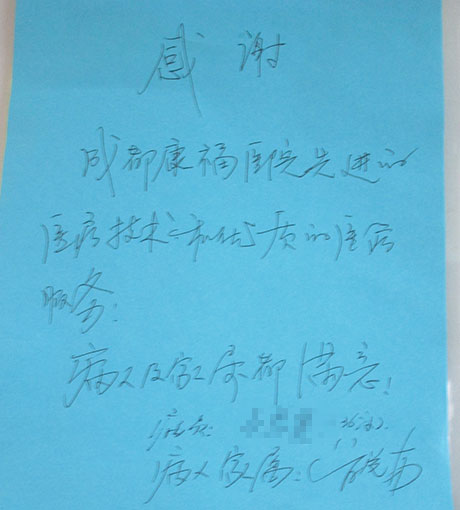 感谢
成都康福医院先进的
医疗技术和优质的医疗
服务！
病人及家属都满意！
病人家属：